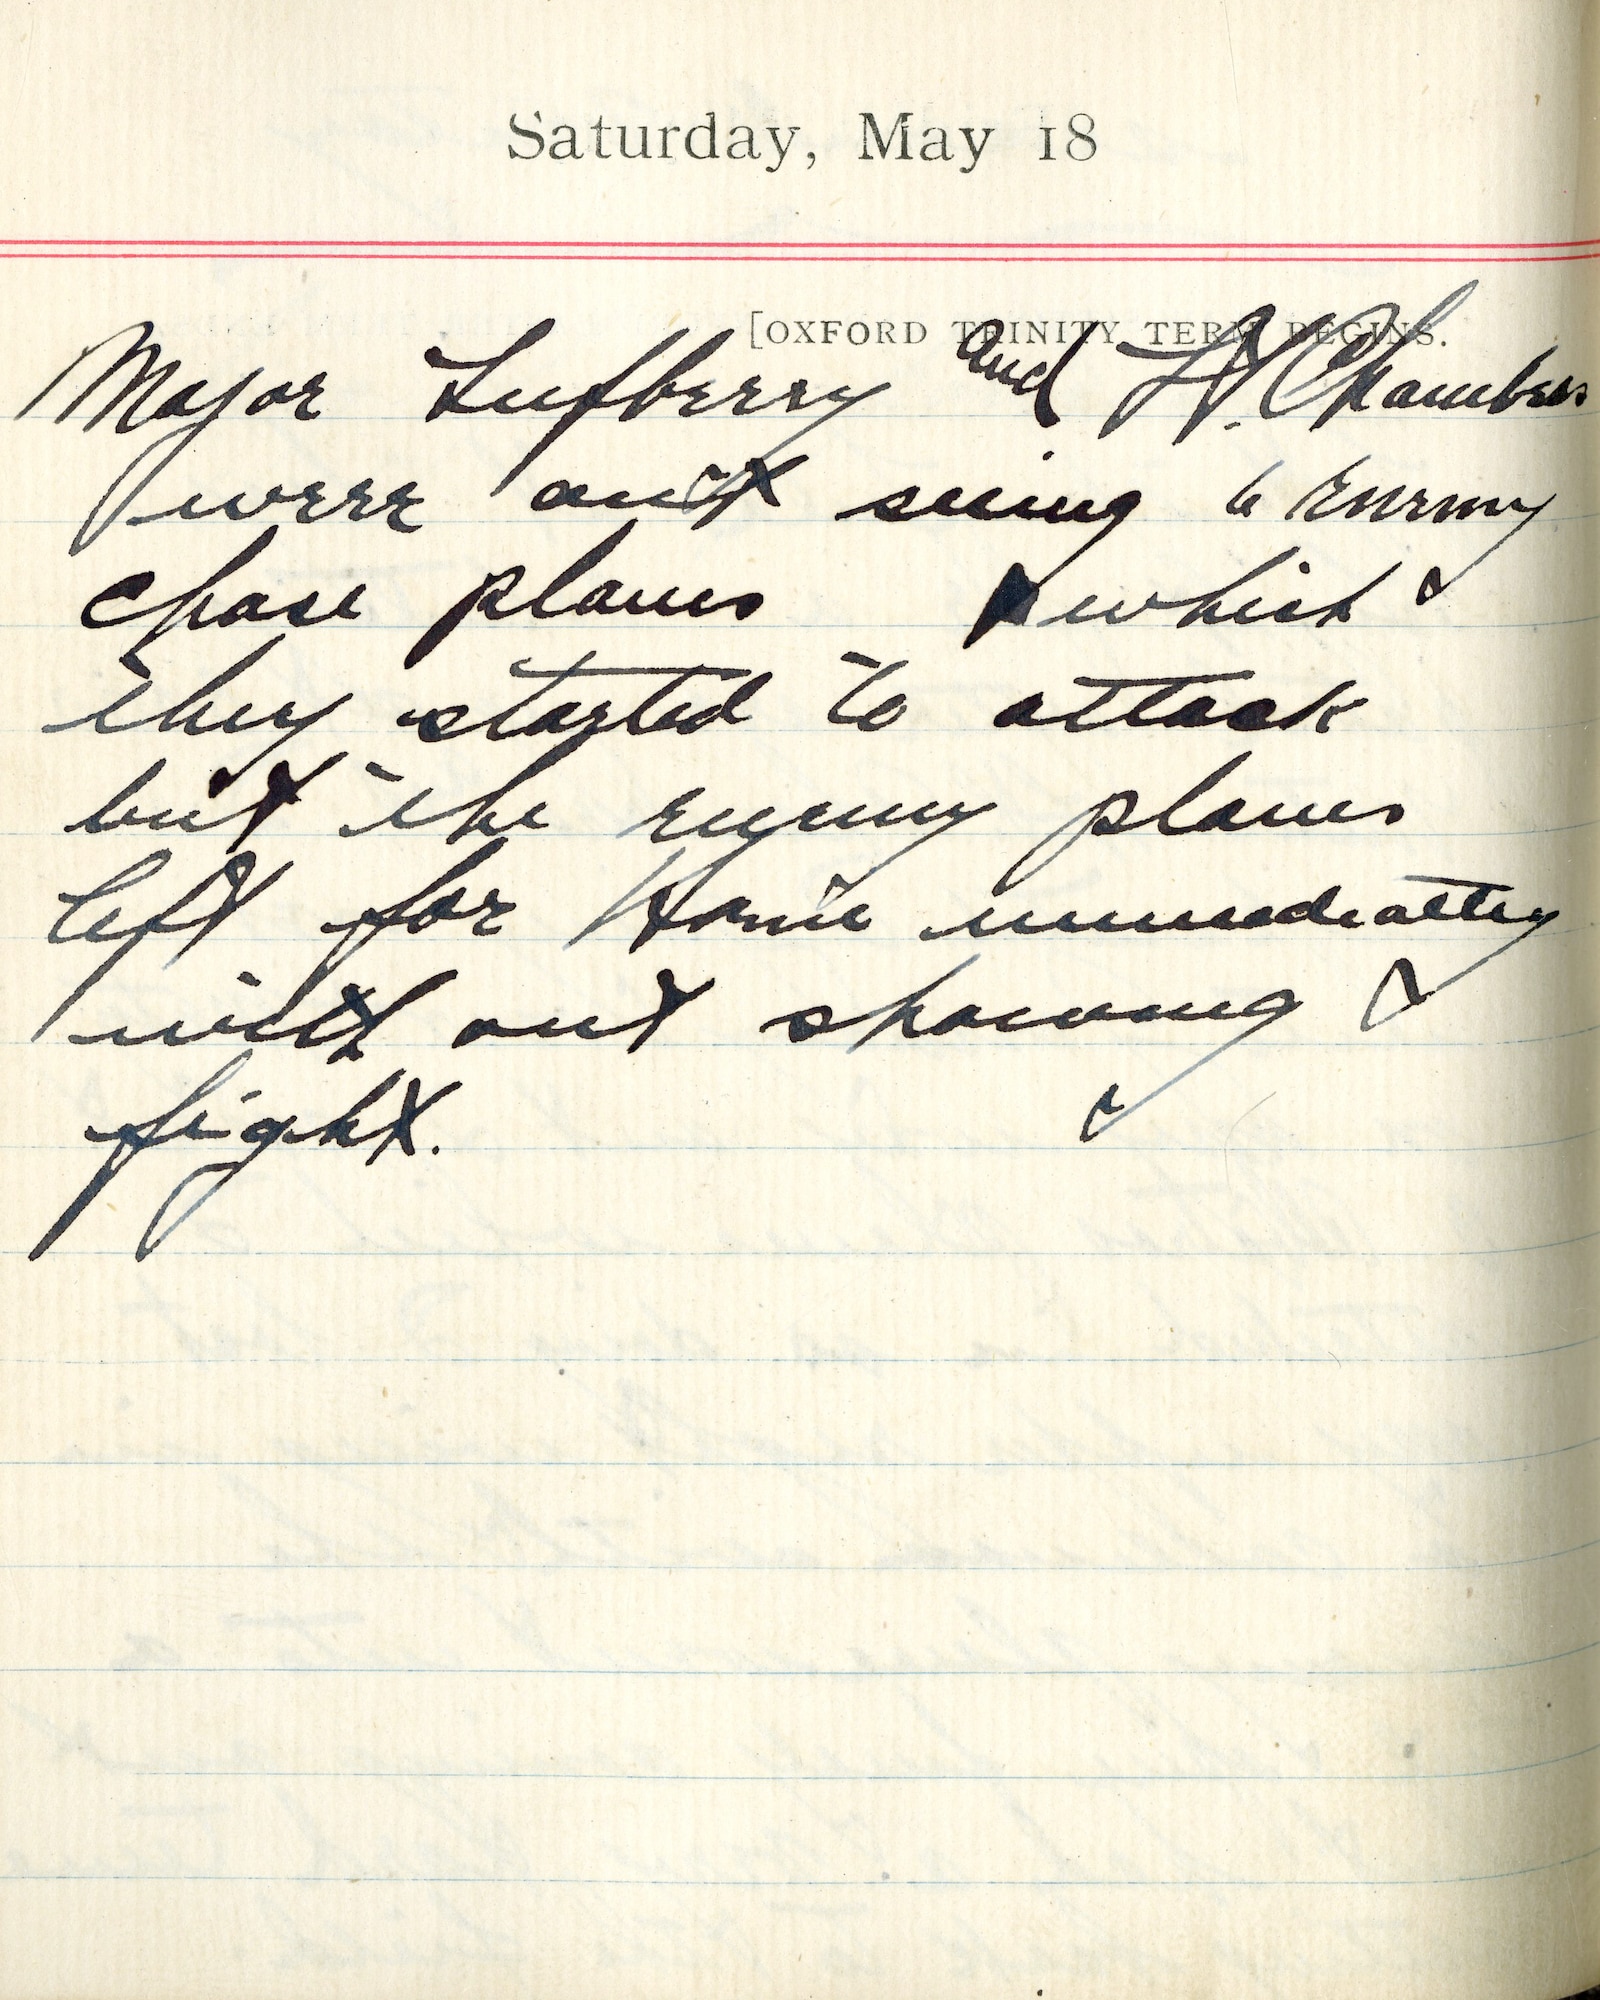 Saturday, May 18
[OXFORD TRINITY TERM BEGINS.
Major Lufberry and Lt. Chambers
were out seeing 6 Enemy
chase planes which
they started to attack
but the enymy planes
left for Home immediattly
with out showing
fight.